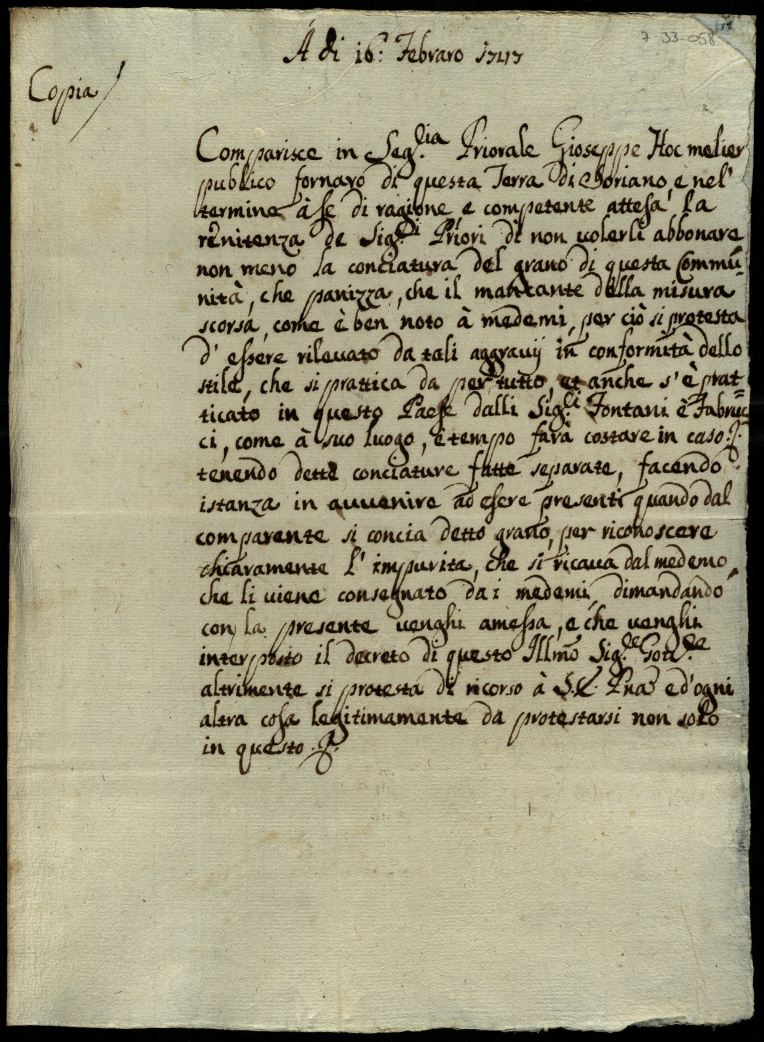 7-33-058
A di 16: Febraro 1747
Copia
Comparisce in Seg.ria Priorale Gioseppe Hocmelier
publico fornaro di questa Terra di Soriano, e nel'
termine à se di ragione, e competente attesa la
renitenza de Sig.ri Priori di non volerli abbonare
non meno la conciatura del grano di questa Commu=
nità, che panizza, che il mancante della misura
scorsa, come è ben noto à medemi, per ciò si protesta
d' essere rilevato da tali aggravij in conformità dello
stile, che si prattica da per tutto, et anche s' è prat=
ticato in questo Paese dalli Sig.ri Fontani è Fabruc=
ci, come à suo luogo, e tempo farà costare in caso
tenendo dette conciature fatte separate, facendo
istanza in avvenire ad essere presenti quando dal
comparente si concia detto grano, per riconoscere
chiaramente l' impurita, che si ricava dal medemo,
che li viene consegnato da i medemi, dimandando
con la presente venghi amessa, e che venghi
interposto il decreto di questo Illmo Sig.re Gov.re
altrimente si protesta di ricorso à S.E. Pna e d'ogni
altra cosa legitimamente da protestarsi non solo
in questo